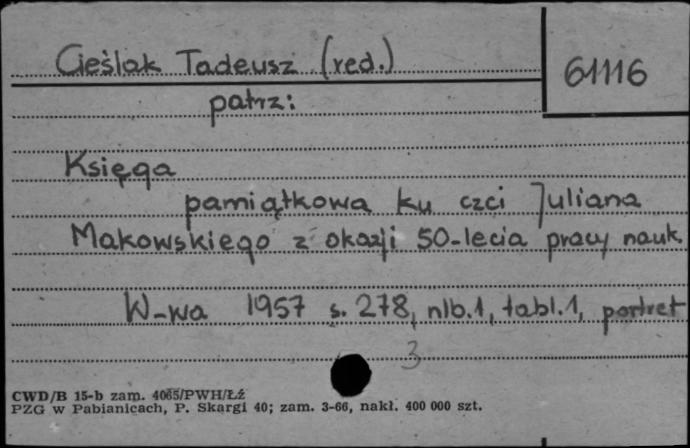 Cieślak Tadeusz (red.)
61116
patrz:
Księga
pamiątkowa ku czci Juliana
Makowskiego z okazji 50-lecia pracy nauk.
W-wa 1957 s. 278, nlb.1, tabl.1, portret
3
CWD/B 15-b zam. 4065/PWH/Łź
PZG w Pabianicach, P. Skargi 40; zam. 3-66, nakł. 400 000 szt.